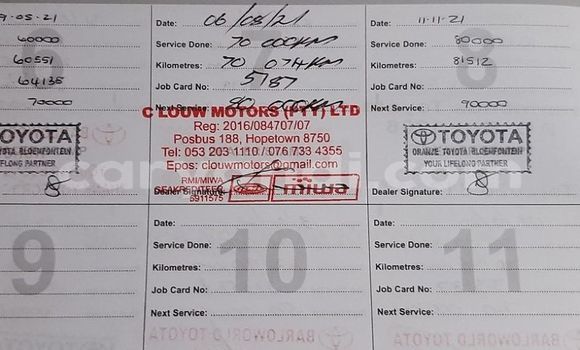 9-05-21
60000
60551
64135
70000
TOYOTA
TOYOTA BLOEMFONTEIN
LIFELONG PARTNER
Date: 06/08/21
Service Done: 70 000KM
Kilometres: 70 074KM
Job Card No: 5187
Next Service: 80 000KM
C LOUW MOTORS (PTY) LTD
Reg: 2016/084707/07
Posbus 188, Hopetown 8750
Tel: 053 203 1110 / 076 733 4355
Epos: clouwmotors@gmail.com
RMI/MIWA
5911575
Dealer Signature:
miwa
Date: 11-11-21
Service Done: 80000
Kilometres: 81512
Job Card No:
Next Service: 90000
TOYOTA
ORANJE TOYOTA BLOEMFONTEIN
YOUR LIFELONG PARTNER
Dealer Signature:
9
Date:
Service Done:
Kilometres:
Job Card No:
Next Service:
10
Date:
Service Done:
Kilometres:
Job Card No:
Next Service:
11
BARLOWORLD TOYOTA